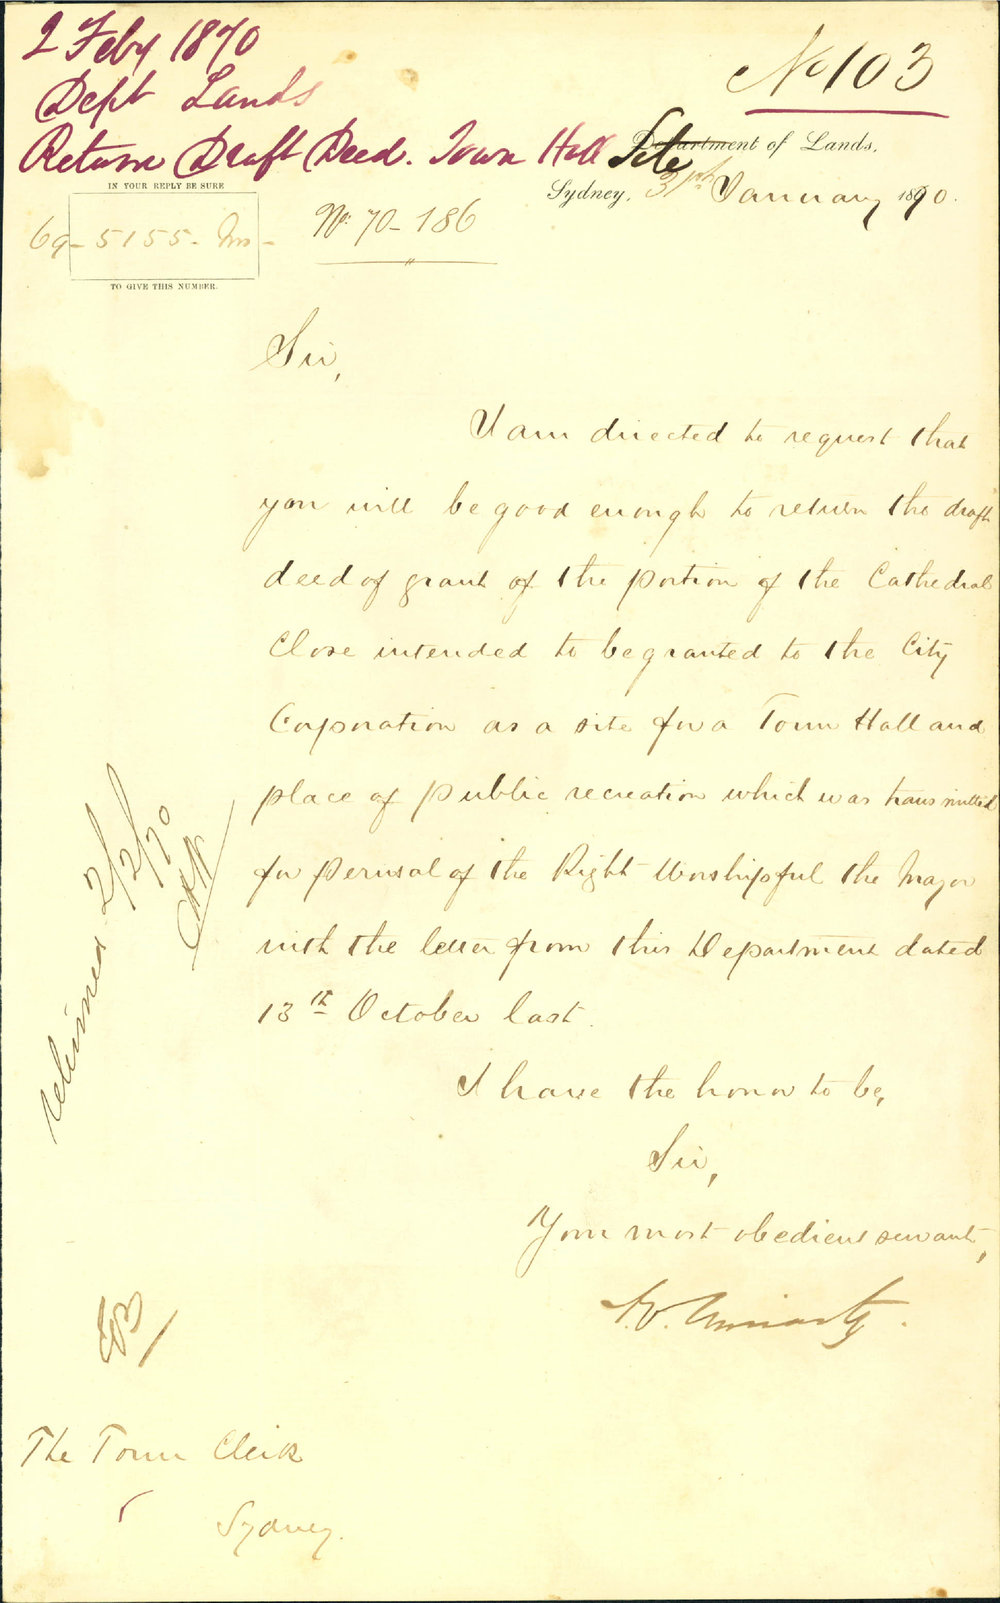 2 Feby 1870
Dept Lands
Return Draft Deed. Town Hall Site
No 103
Department of Lands,
Sydney, 31st January 1870.
IN YOUR REPLY BE SURE
69-5155-
TO GIVE THIS NUMBER.
No. 70-186
Sir,
I am directed to request that
you will be good enough to return the draft
deed of grant of the portion of the Cathedral
Close intended to be granted to the City
Corporation as a site for a Town Hall and
place of Public recreation which was transmitted
for perusal of the Right Worshipful the Mayor
with the letter from this Department dated
13th October last.
I have the honor to be,
Sir,
Your most obedient servant,
Moriarty.
returned 2/2/70
The Town Clerk
Sydney.